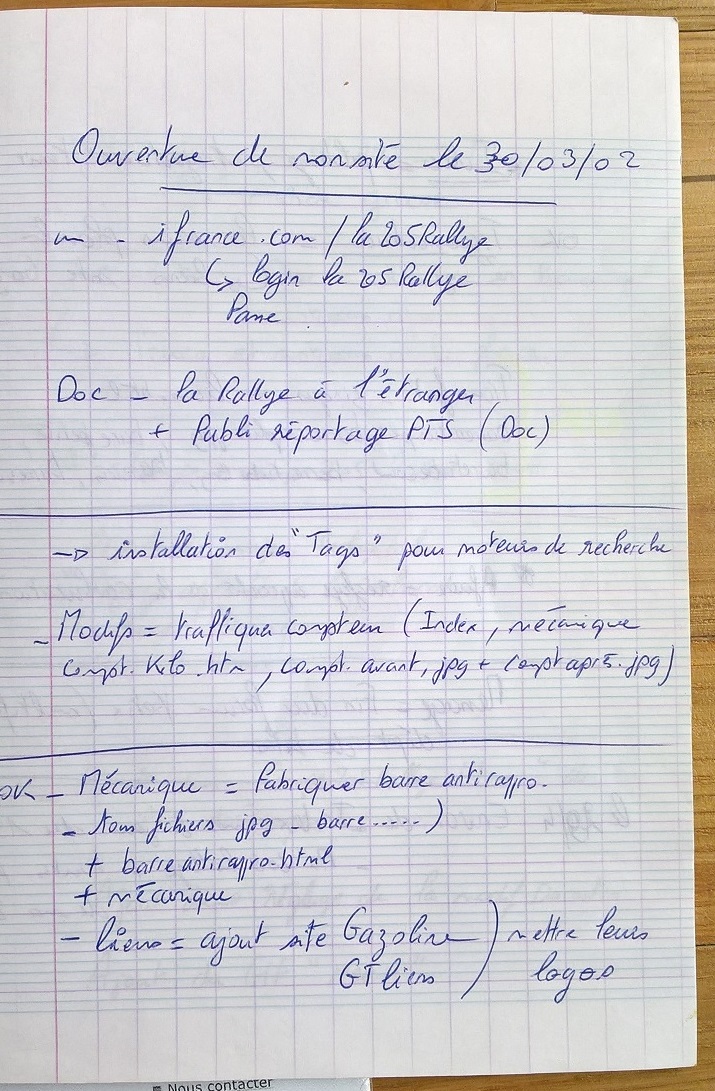 Ouverture de mon site le 30/03/02
- ifrance.com/la205Rallye
↳ login la205Rallye
Doc - la Rallye à l'étranger
+ Publi réportage PTS (Doc)
-> installation des "Tags" pour moteurs de recherche
- Modifs = traffiquer compteur (Index, mécanique
compt.Kilo.htm, compt.avant.jpg + compt après.jpg)
OK - Mécanique = Fabriquer barre antirappro.
- Nom fichiers jpg - barre.....)
+ barreantirappro.html
+ mécanique
- liens = ajout site Gazoline ) mettre leurs
GTliens logos
Nous contacter